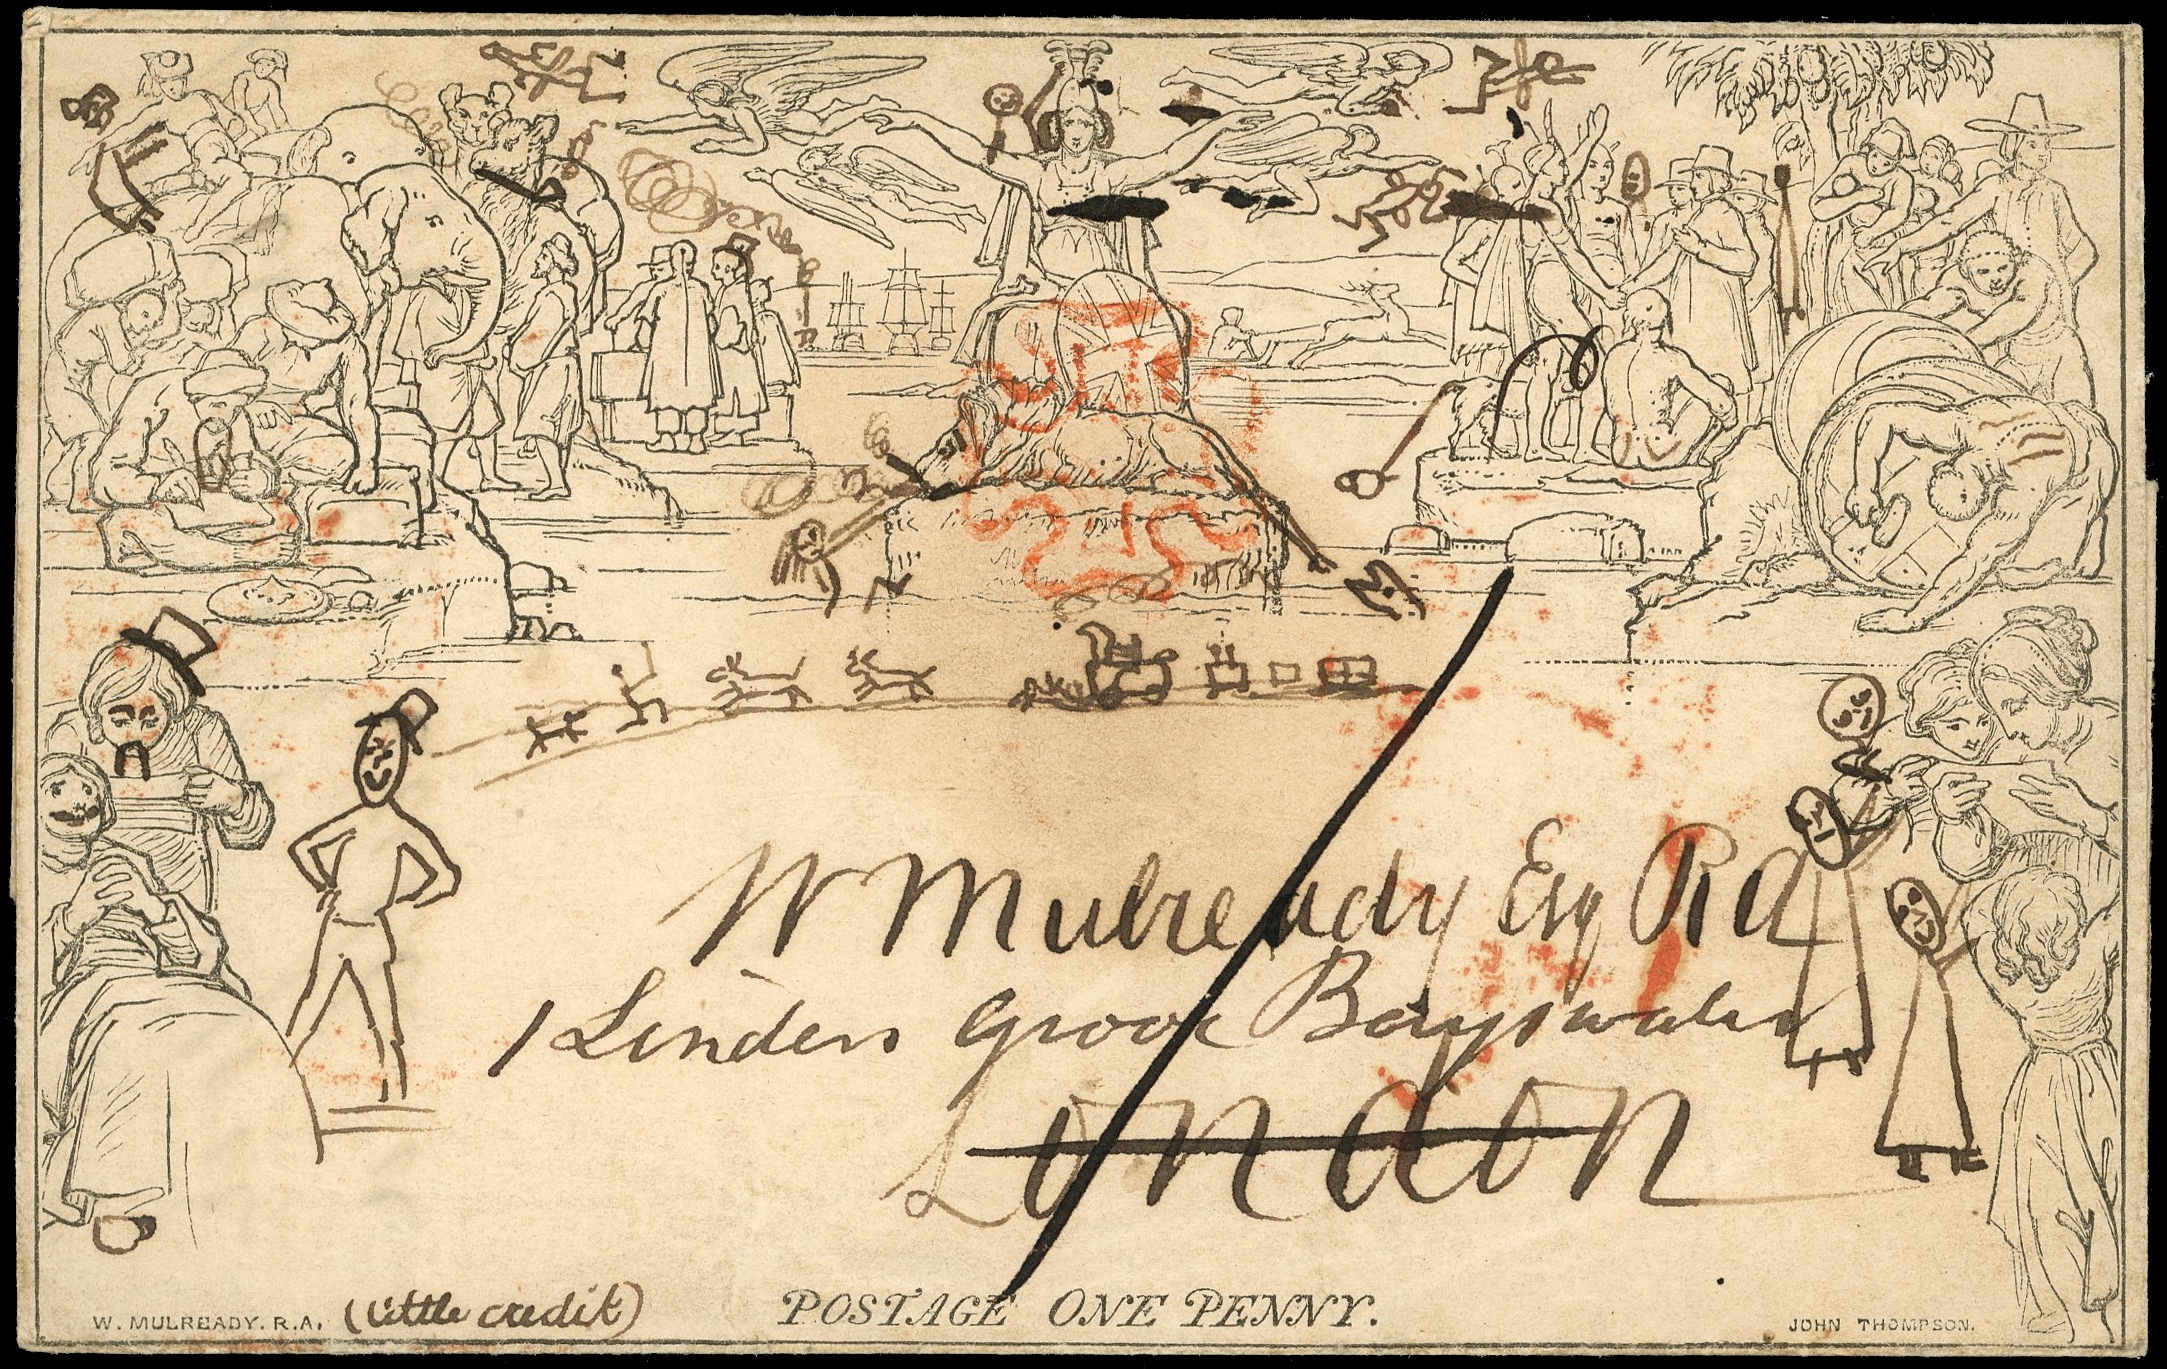 W Mulready Esq RA
1 Linden Grove Bayswater
London
W. MULREADY. R.A. (little credit) POSTAGE ONE PENNY. JOHN THOMPSON.